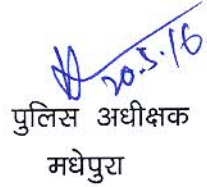 20.5.16
पुलिस अधीक्षक
मधेपुरा